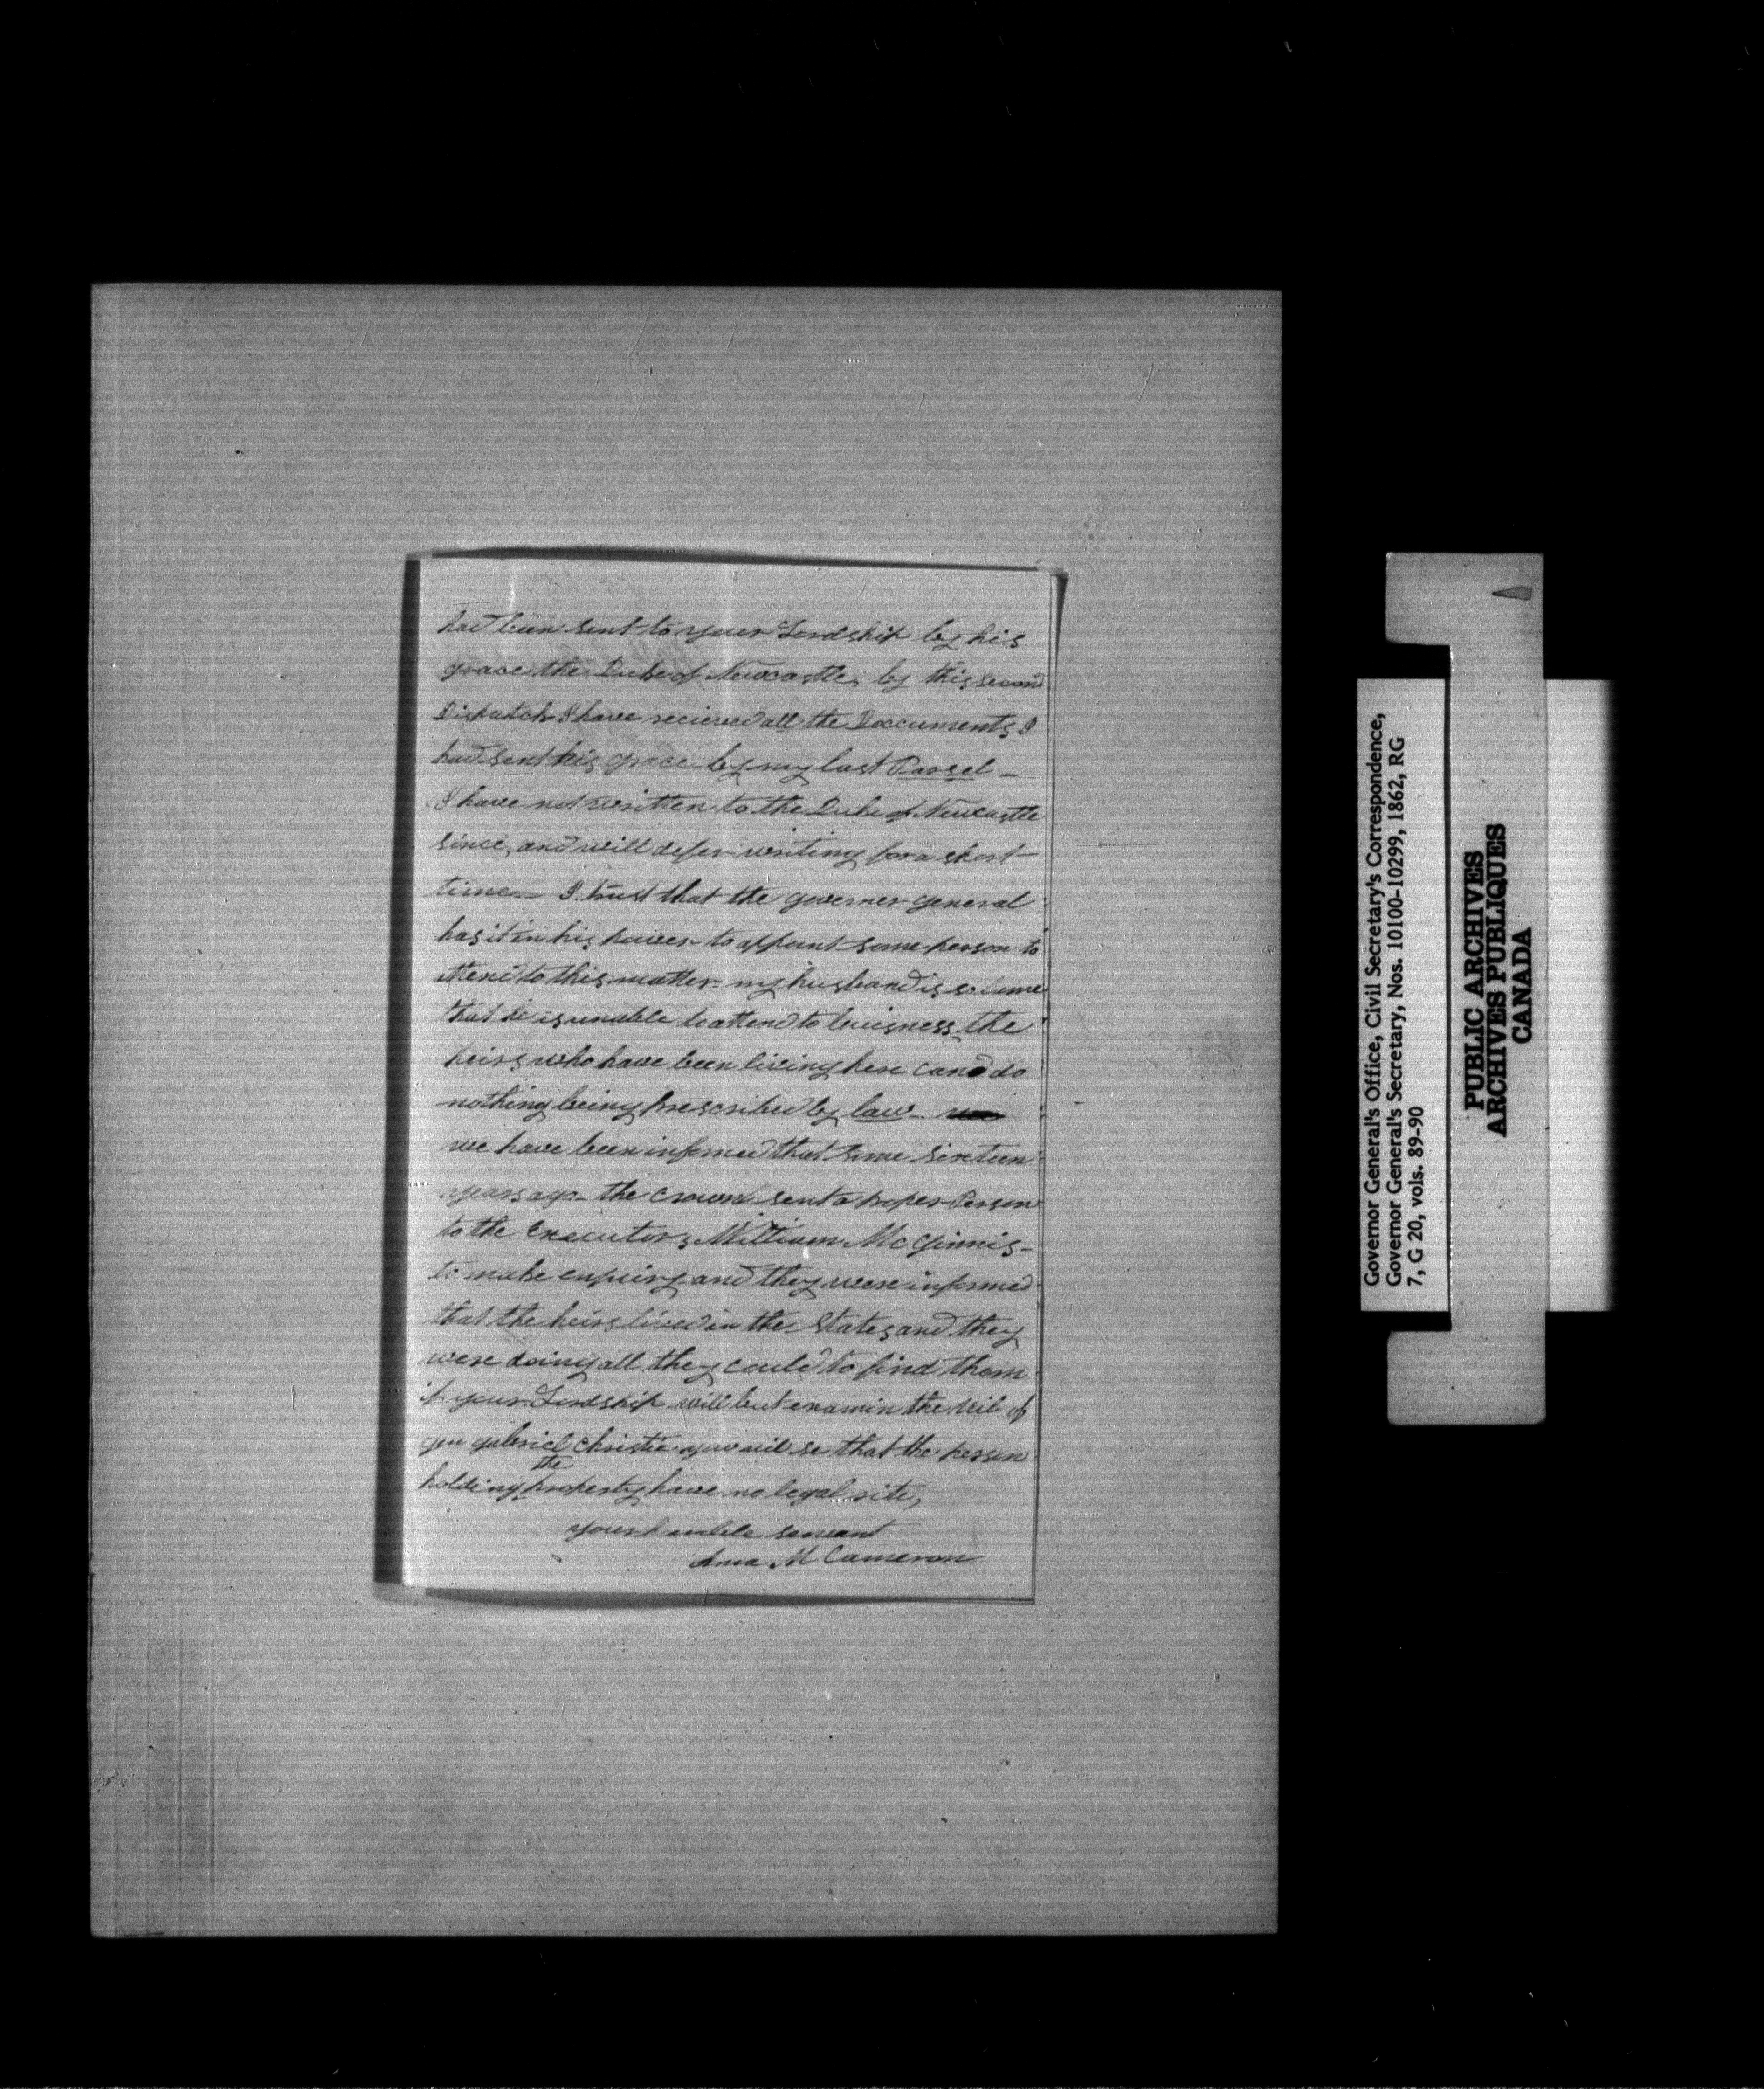 had been sent to your Lordship by his
grace the Duke of Newcastle; by this second
Dispatch I have recieved all the Doccuments I
had sent his grace by my last Parsel -
I have not written to the Duke of Newcastle
since, and will defer writing for a short
time - I trust that the governer general
has it in his power to appoint some person to
attend to this matter - my husband is so lame
that he is unable to attend to buisness, the
heirs who have been living here can do
nothing being prescribed by law -
we have been informed that some sixteen
years ago - the Crown sent a proper Person
to the Executors William McGinnis -
to make enquiry and they were informed
that the heirs lived in the States and they
were doing all they could to find them
if your Lordship will but examin the wil of
gen gabriel Christie you wil se that the person
holding the property have no legal rite,
your humble servant
Ama M Cameron
Governor General's Office, Civil Secretary's Correspondence,
Governor General's Secretary, Nos. 10100-10299, 1862, RG
7, G 20, vols. 89-90
PUBLIC ARCHIVES
ARCHIVES PUBLIQUES
CANADA